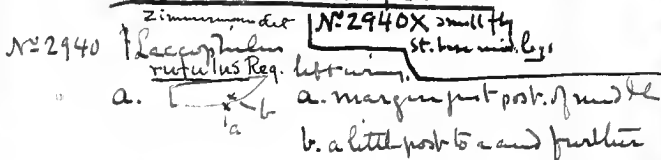 Zimmermann det
No 2940X small fly
st. base mid. legs
No 2940 Laccophilus
rufulus Reg. left wing.
a. b a. margin just post. of middle
a
b. a little post to a and further